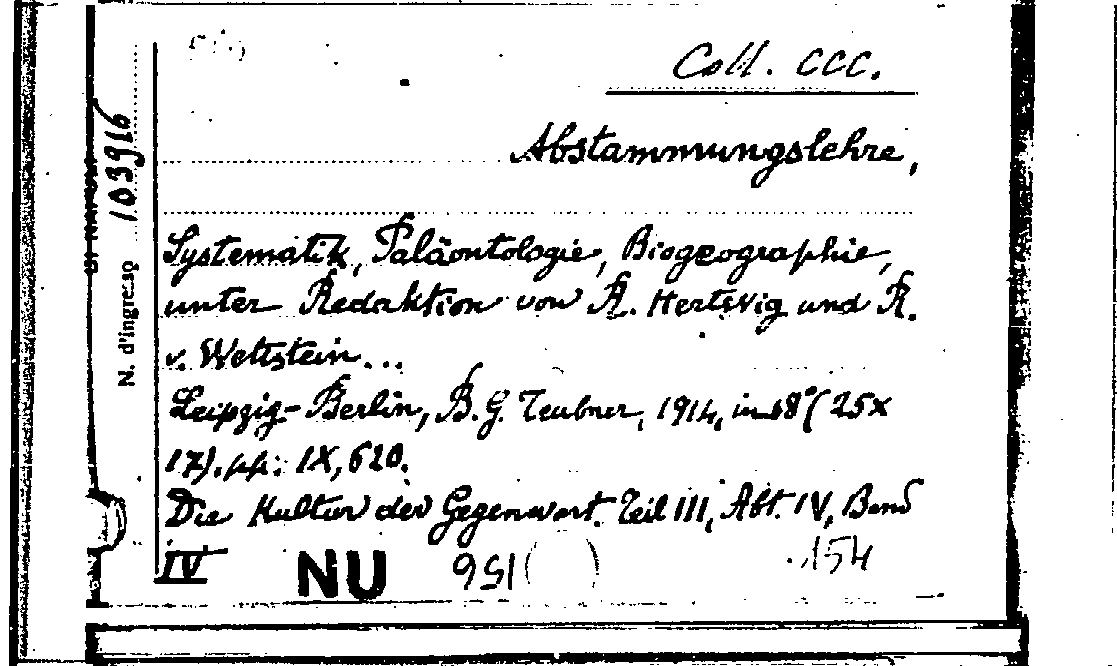 Coll. CCC.
Abstammungslehre,
Systematik, Paläontologie, Biogeographie,
unter Redaktion von R. Hertwig und R.
v. Wettstein...
Leipzig-Berlin, B. G. Teubner, 1914, in 8° (25x
17). pp. IX, 620.
Die Kultur der Gegenwart. Teil III, Abt. IV, Band
IV
NU
154
N. d'ingresso 103916